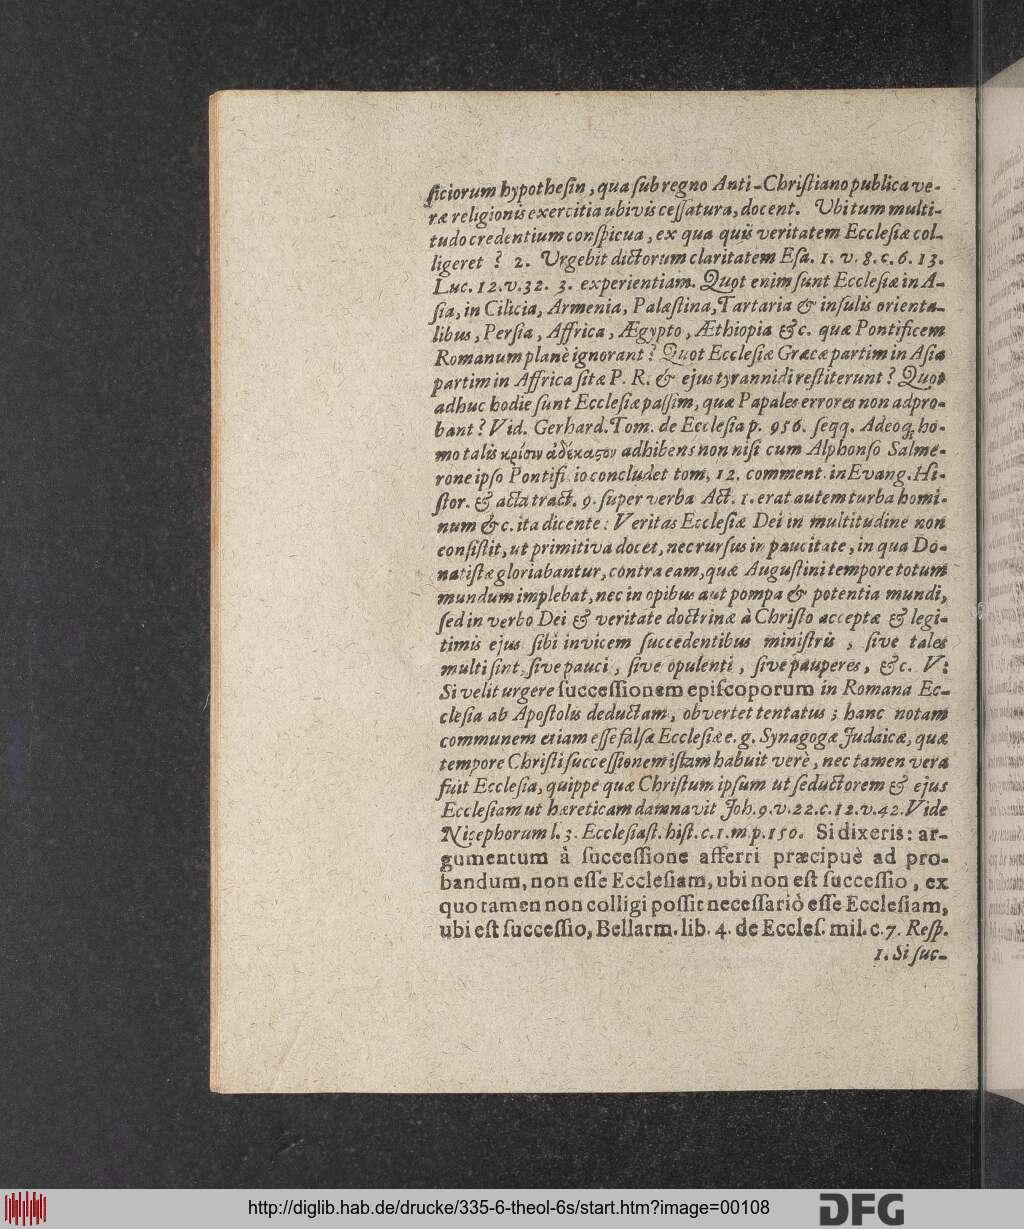 ſiciorum hypotheſin, qua ſub regno Anti-Chriſtiano publica ve-
ræ religionis exercitia ubivis ceſſatura, docent. Ubi tum multi-
tudo credentium conſpicua, ex qua quis veritatem Eccleſiæ col-
ligeret ? 2. Urgebit dictorum claritatem Eſa. 1. v. 8. c. 6. 13.
Luc. 12. v. 32. 3. experientiam. Quot enim ſunt Eccleſiæ in A-
ſia, in Cilicia, Armenia, Palæſtina, Tartaria & inſulis orienta-
libus, Perſia, Affrica, Ægypto, Æthiopia &c. quæ Pontificem
Romanum planè ignorant ? Quot Eccleſiæ Græcæ partim in Aſia
partim in Affrica ſitæ P. R. & ejus tyrannidi reſtiterunt ? Quot
adhuc hodie ſunt Eccleſiæ paſſim, quæ Papales errores non adpro-
bant ? Vid. Gerhard. Tom. de Eccleſia p. 956. ſeqq. Adeoq; ho-
mo talis κρίσιν ἀδέκαςον adhibens non niſi cum Alphonſo Salme-
rone ipſo Pontificio concludet tom, 12. comment. in Evang. Hi-
ſtor. & acta tract. 9. ſuper verba Act. 1. erat autem turba homi-
num &c. ita dicente : Veritas Eccleſiæ Dei in multitudine non
conſiſtit, ut primitiva docet, nec rurſus in paucitate, in qua Do-
natiſtæ gloriabantur, contra eam, quæ Auguſtini tempore totum
mundum implebat, nec in opibus aut pompa & potentia mundi,
ſed in verbo Dei & veritate doctrinæ à Chriſto acceptæ & legi-
timis ejus ſibi invicem ſuccedentibus miniſtris, ſive tales
multi ſint, ſive pauci, ſive opulenti, ſive pauperes, &c. V:
Si velit urgere ſucceſſionem epiſcoporum in Romana Ec-
cleſia ab Apoſtolis deductam, obvertet tentatus ; hanc notam
communem etiam eſſe falſæ Eccleſiæ e. g. Synagogæ Judaicæ, quæ
tempore Chriſti ſucceſſionem iſtam habuit verè, nec tamen vera
fuit Eccleſia, quippe quæ Chriſtum ipſum ut ſeductorem & ejus
Eccleſiam ut hæreticam damnavit Joh. 9. v. 22. c. 12. v. 42. Vide
Nicephorum l. 3. Eccleſiaſt. hiſt. c. 1. m. p. 150. Si dixeris: ar-
gumentum à ſucceſſione afferri præcipuè ad pro-
bandum, non eſſe Eccleſiam, ubi non eſt ſucceſſio, ex
quo tamen non colligi poſſit neceſſariò eſſe Eccleſiam,
ubi eſt ſucceſſio, Bellarm. lib. 4. de Eccleſ. mil. c. 7. Reſp.
1. Si ſuc-
http://diglib.hab.de/drucke/335-6-theol-6s/start.htm?image=00108
DFG